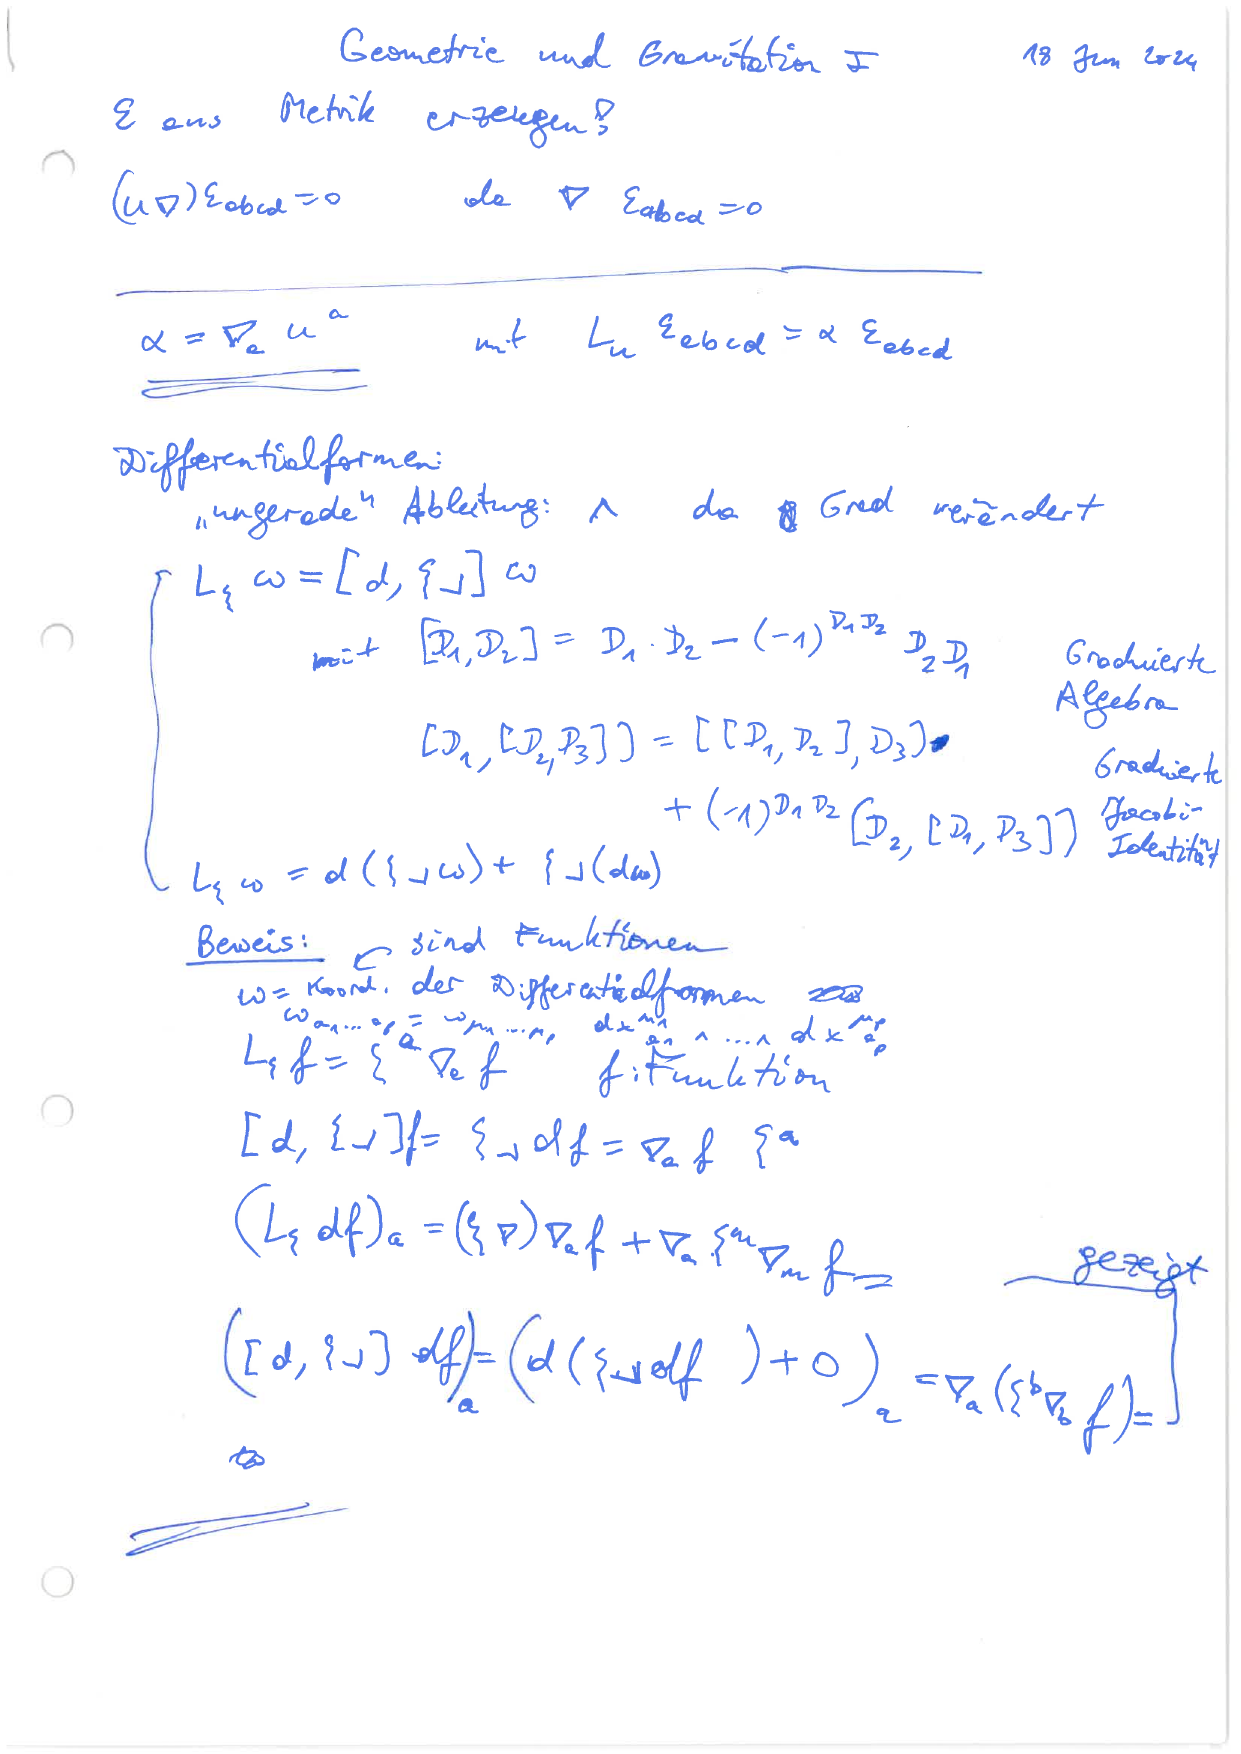 Geometrie und Gravitation I 18 Jun 2024
ε aus Metrik erzeugen?
(u∇)ε_{abcd} = 0 da ∇ ε_{abcd} = 0
α = ∇_a u^a mit L_u ε_{abcd} = α ε_{abcd}
Differentialformen:
„ungerade" Ableitung: ∧ da Grad verändert
L_ξ ω = [d, ξ⌟] ω
mit [D_1, D_2] = D_1 · D_2 − (−1)^{D_1 D_2} D_2 D_1 Graduierte Algebra
[D_1, [D_2, D_3]] = [[D_1, D_2], D_3]
+ (−1)^{D_1 D_2} [D_2, [D_1, D_3]] Graduierte Jacobi-Identität
L_ξ ω = d(ξ⌟ω) + ξ⌟(dω)
Beweis: sind Funktionen
ω = Koord. der Differentialformen
ω_{a_1...a_p} = ω_{μ_1...μ_p} dx^{μ_1}_{a_1} ∧ ... ∧ dx^{μ_p}_{a_p}
L_ξ f = ξ^a ∇_a f f: Funktion
[d, ξ⌟]f = ξ⌟df = ∇_a f ξ^a
(L_ξ df)_a = (ξ∇)∇_a f + ∇_a ξ^m ∇_m f = gezeigt
([d, ξ⌟] df)_a = (d(ξ⌟df) + 0)_a = ∇_a(ξ^b ∇_b f) =